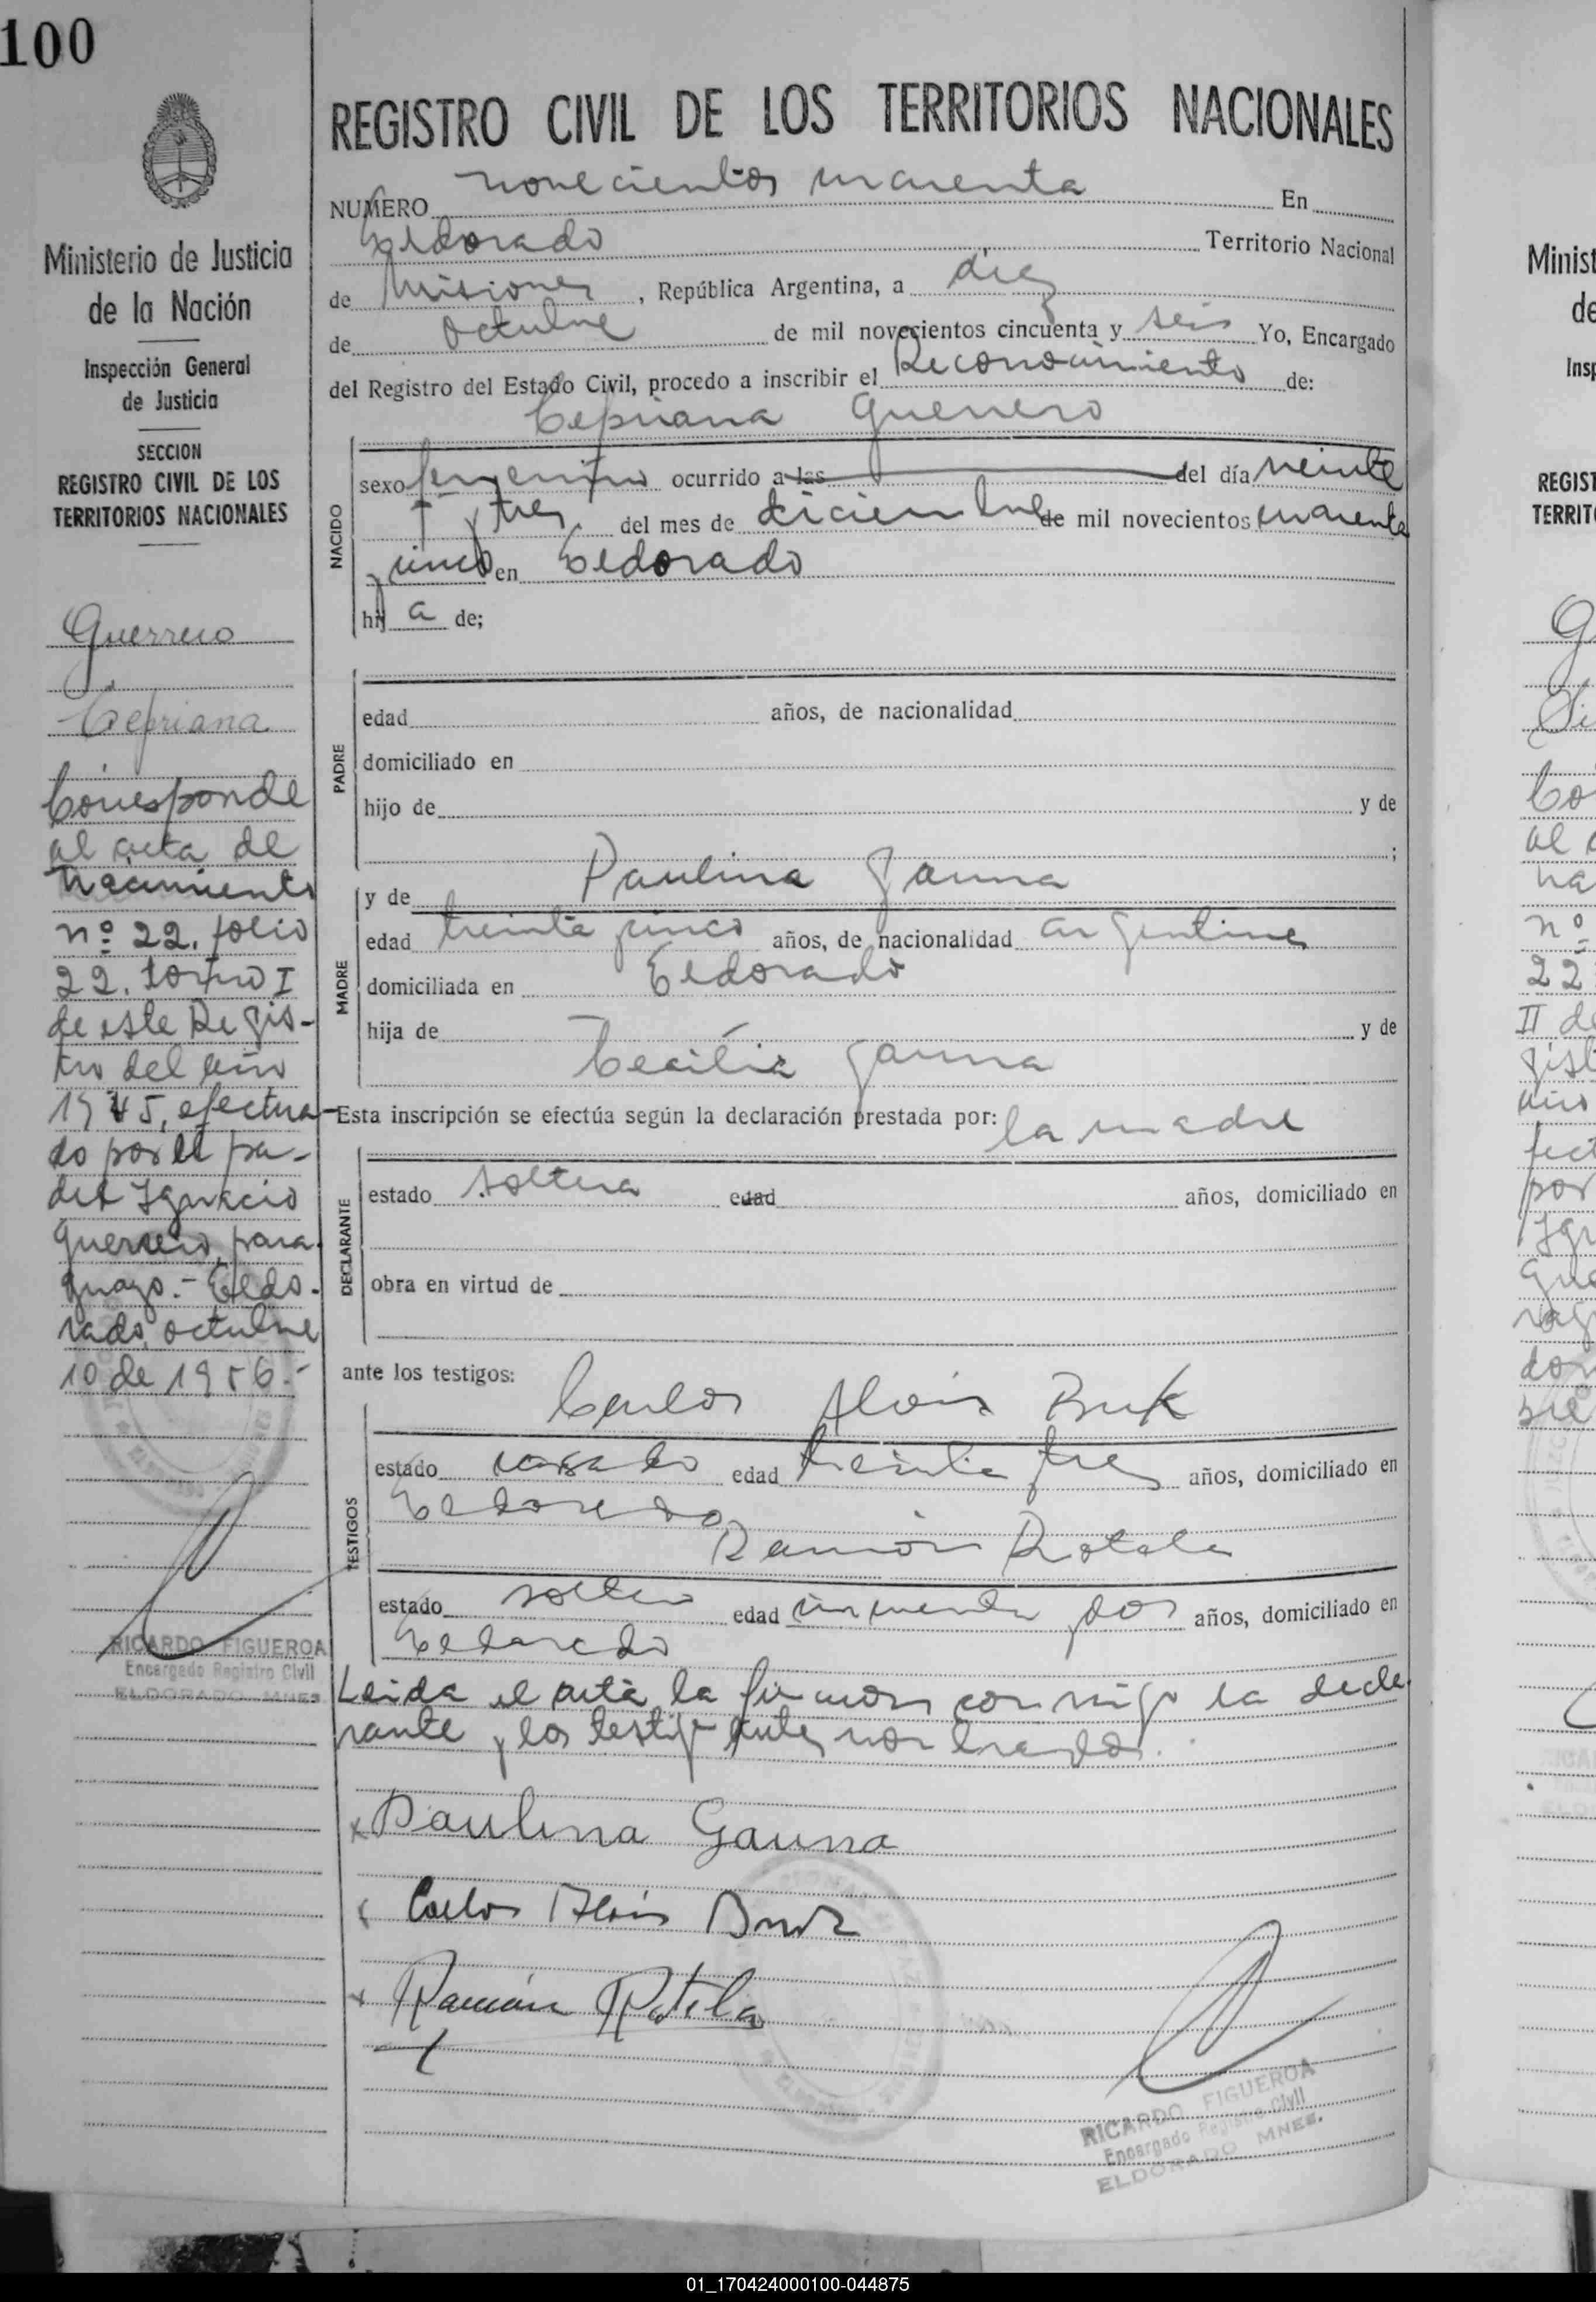 100
REGISTRO CIVIL DE LOS TERRITORIOS NACIONALES
Ministerio de Justicia
de la Nación
Inspección General
de Justicia
SECCION
REGISTRO CIVIL DE LOS
TERRITORIOS NACIONALES
Guerrero
Cepriana
Corresponde
al acta de
nacimiento
nº 22. folio
22. tomo I
de este Regis-
tro del año
1945, efectua-
do por el pa-
dre Ignacio
Guerrero, para-
guayo.- Eldo-
rado, octubre
10 de 1956.-
RICARDO FIGUEROA
Encargado Registro Civil
ELDORADO MNES.
NUMERO novecientos cuarenta En
Eldorado Territorio Nacional
de Misiones, República Argentina, a diez
de octubre de mil novecientos cincuenta y seis Yo, Encargado
del Registro del Estado Civil, procedo a inscribir el Reconocimiento de:
Cepriana Guerrero
NACIDO
sexo femenino ocurrido a las del día veinte
y tres del mes de diciembre de mil novecientos cuarenta
y cinco en Eldorado
hij a de;
PADRE
edad años, de nacionalidad
domiciliado en
hijo de y de
;
MADRE
y de Paulina Gauna
edad treinta cinco años, de nacionalidad argentina
domiciliada en Eldorado
hija de y de
Cecilia Gauna
Esta inscripción se efectúa según la declaración prestada por: la madre
DECLARANTE
estado soltera edad años, domiciliado en
obra en virtud de
ante los testigos:
TESTIGOS
Carlos Alois
estado casado edad treinta tres años, domiciliado en
Eldorado
Ramón Rotela
estado soltero edad cincuenta dos años, domiciliado en
Eldorado
Leida el acta la firman conmigo la decla-
rante y los testigos antes nombrados.
x Paulina Gauna
x Carlos Alois
x Ramón Rotela
RICARDO FIGUEROA
Encargado Registro Civil
ELDORADO MNES.
Minist
de
Insp
REGIST
TERRIT
Co
al
na
nº
22
II de
gist
año
fect
por
01_170424000100-044875